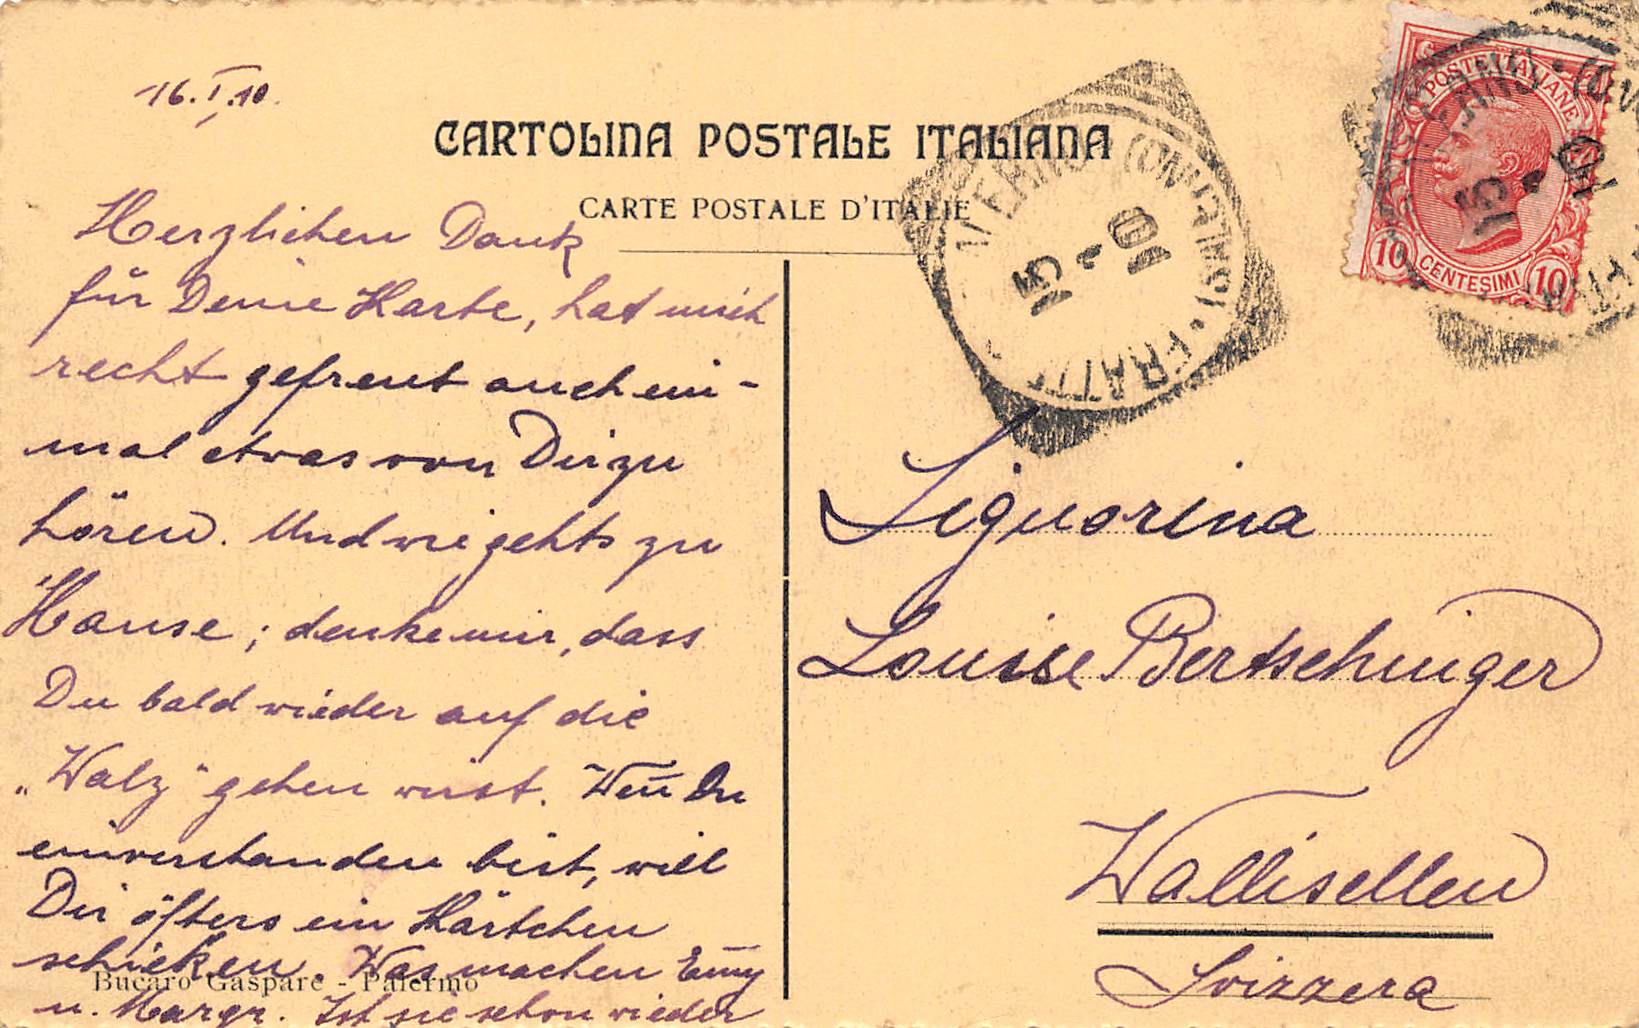 16.I.10.
CARTOLINA POSTALE ITALIANA
CARTE POSTALE D'ITALIE
Herzlichen Dank
für Deine Karte, hat mich
recht gefreut auch ein-
mal etwas von Dir zu
hören. Und wie gehts zu
Hause; denke mir, dass
Du bald wieder auf die
„Walz" gehen wirst. Weñ Du
einverstanden bist, will
Dir öfters ein Kärtchen
schicken. Was machen Em̄y
u. Margr. Ist sie schon wieder
Bucaro Gaspare - Palermo
POSTE ITALIANE
10 CENTESIMI 10
15 . 10
FRATT
15 . 10
Signorina
Louise Bertschinger
Wallisellen
Svizzera